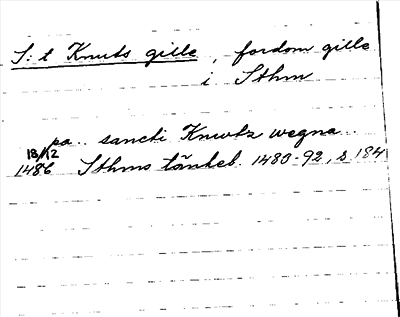 S:t Knuts gille, fordom gille
i Sthm
pa.. sancti Knwtz wegna..
18/12
1486 Sthms tänkeb. 1483-92, s 184